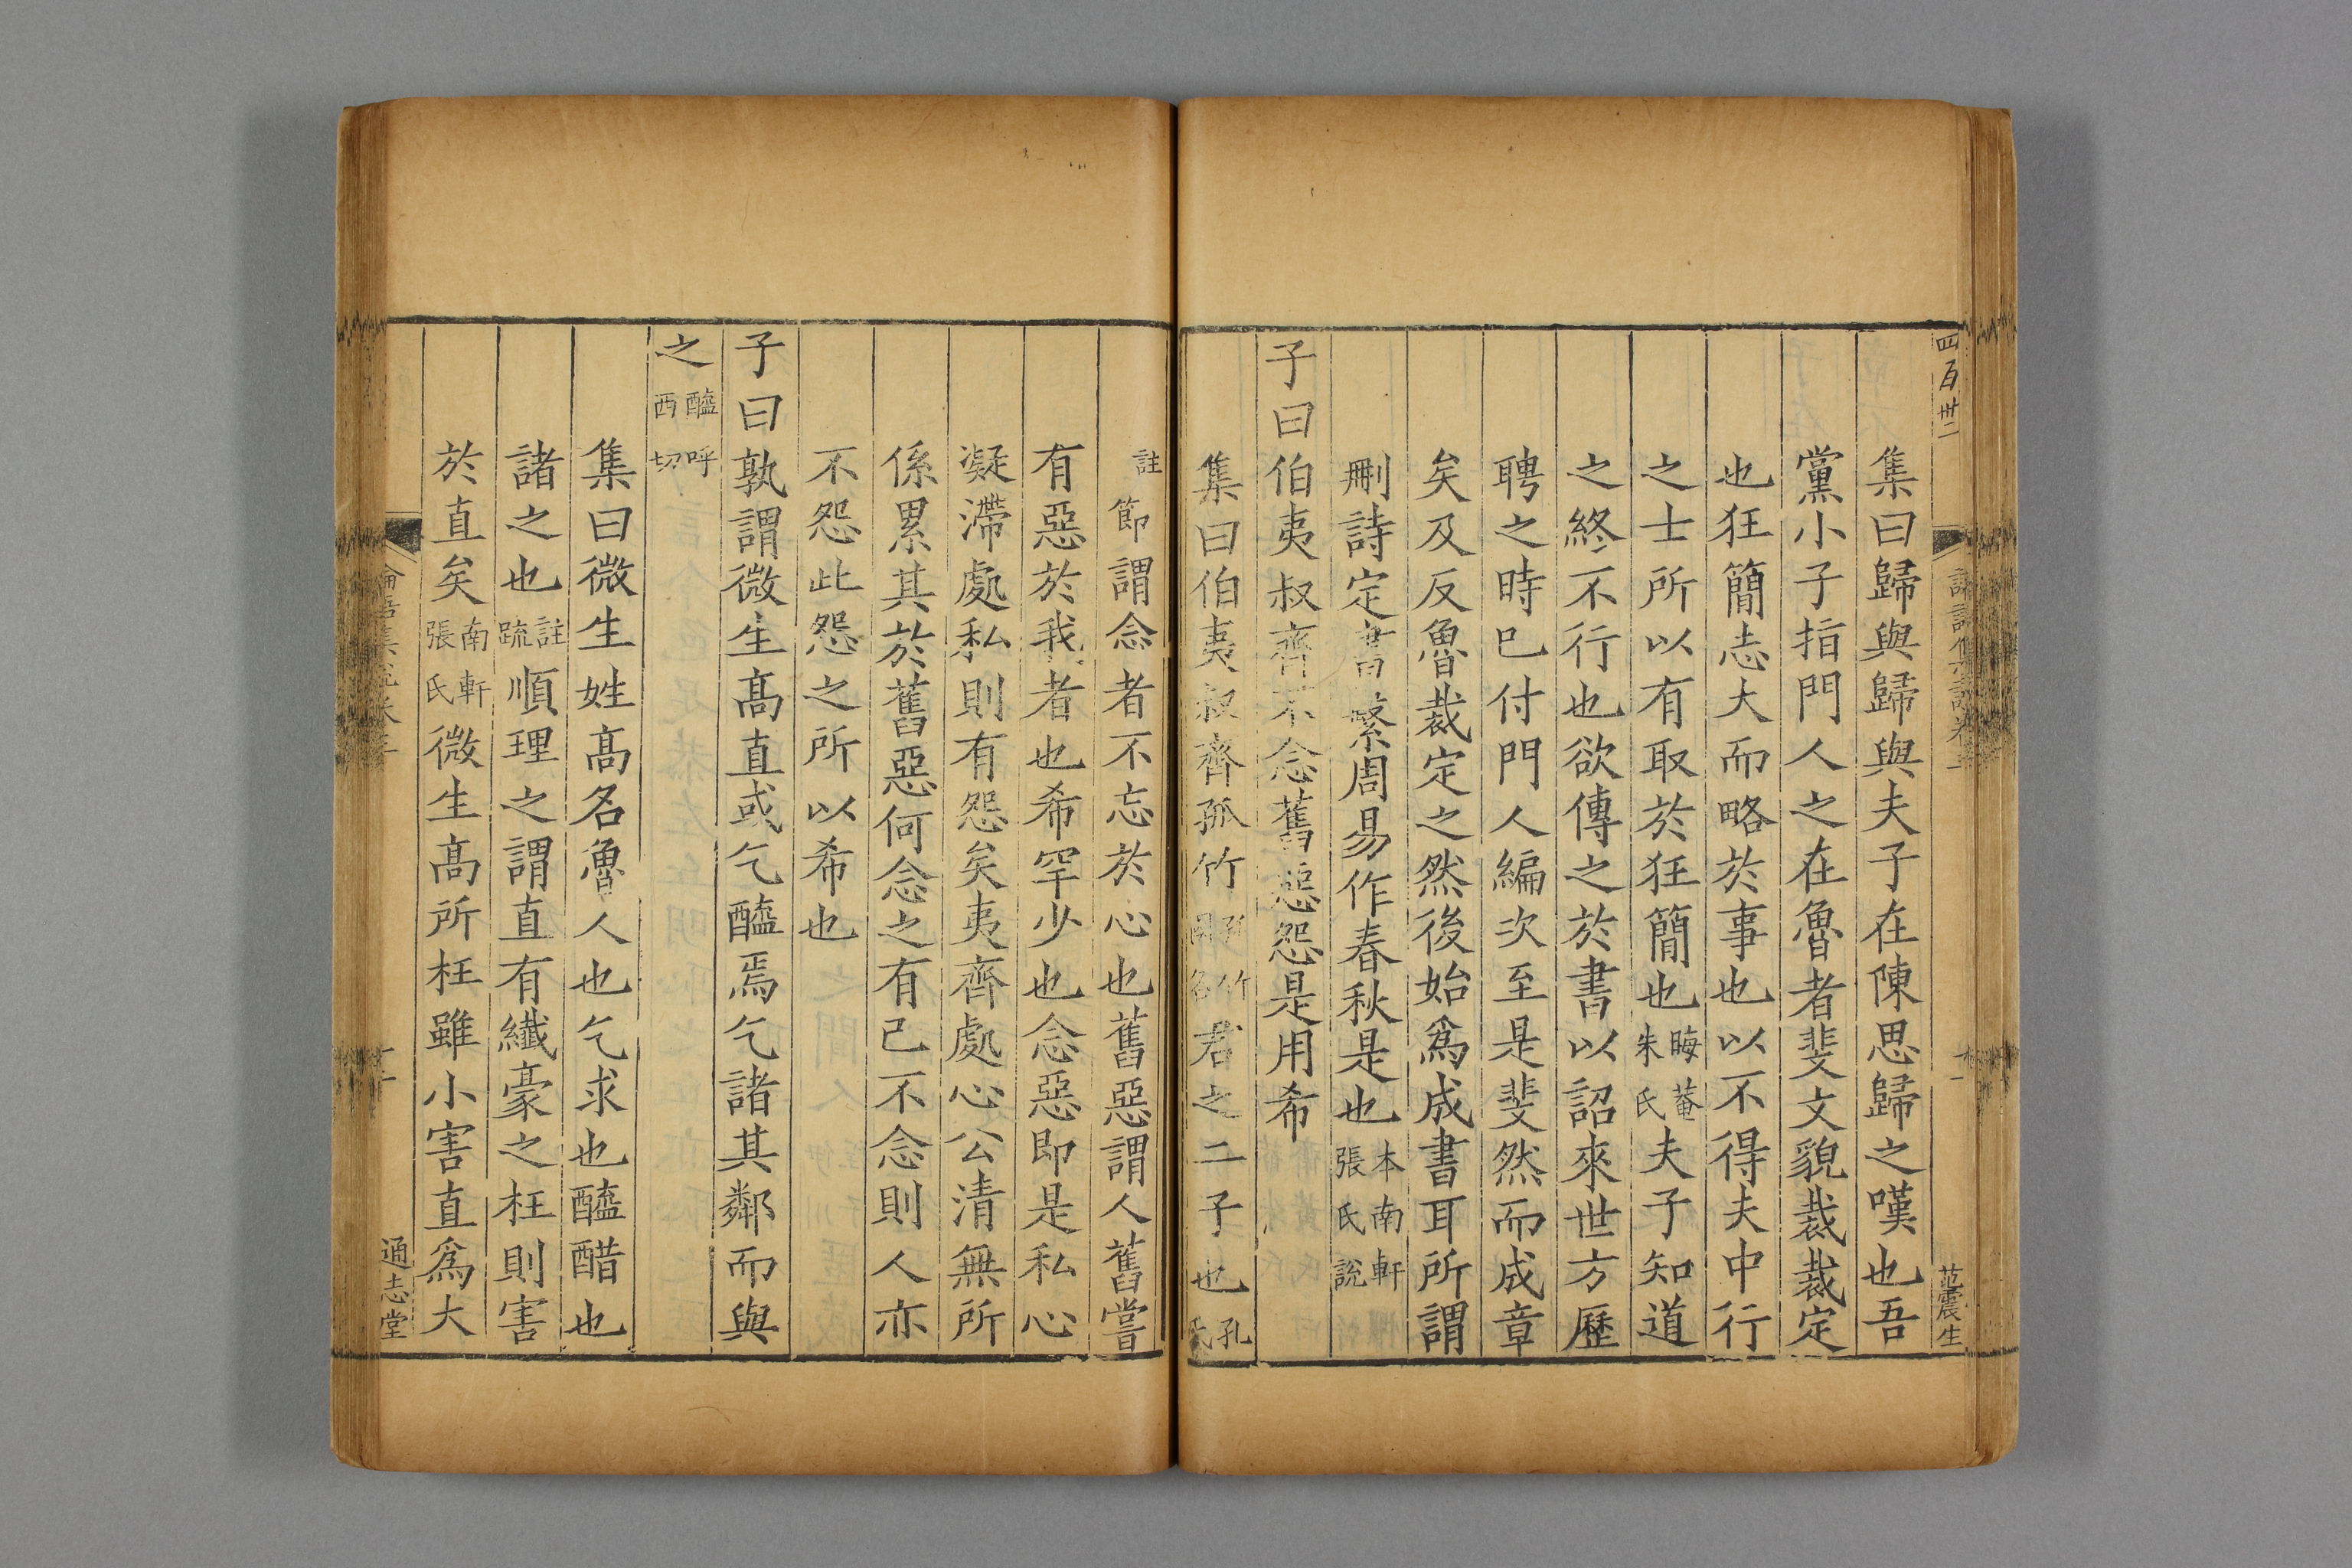 四百卅二
范震生
集曰歸與歸與夫子在陳思歸之嘆也吾
黨小子指門人之在魯者斐文貌裁裁定
也狂簡志大而略於事也以不得夫中行
之士所以有取於狂簡也晦菴朱氏夫子知道
之終不行也欲傳之於書以詔來世方歷
聘之時已付門人編次至是斐然而成章
矣及反魯裁定之然後始爲成書耳所謂
刪詩定書繫周易作春秋是也本南軒張氏說
子曰伯夷叔齊不念舊惡怨是用希
集曰伯夷叔齊孤竹孤竹國名君之二子也孔氏
註節謂念者不忘於心也舊惡謂人舊嘗
有惡於我者也希罕少也念惡即是私心
凝滯處私則有怨矣夷齊處心公清無所
係累其於舊惡何念之有已不念則人亦
不怨此怨之所以希也
子曰孰謂微生髙直或乞醯焉乞諸其鄰而與
之醯呼西切
集曰微生姓髙名魯人也乞求也醯醋也
諸之也註疏順理之謂直有纖豪之枉則害
於直矣南軒張氏微生髙所枉雖小害直爲大
通志堂